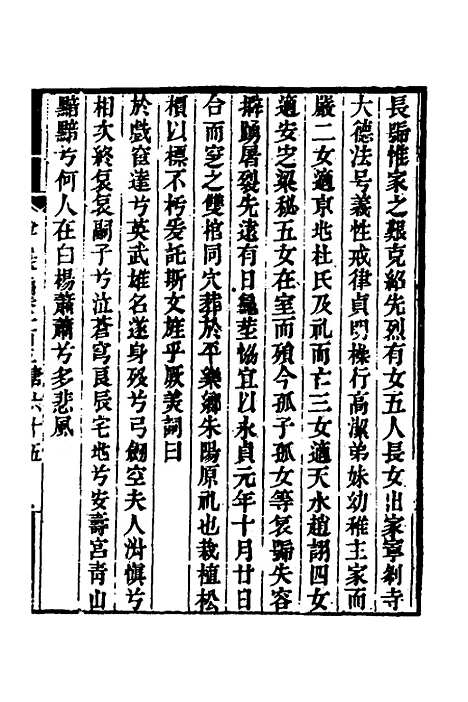 長歸惟家之艱克紹先烈有女五人長女出家寧剎寺
大德法号義性戒律貞明操行高潔弟妹幼稚主家而
嚴二女適京地杜氏及礼而亡三女適天水趙詡四女
適安定梁秘五女在室而殞今孤子孤女等哀歸失容
擗踴屠裂先遠有日龜筮協宜以永貞元年十月廿日
合而窆之雙棺同穴葬於平樂鄉朱陽原礼也栽植松
檟以標不朽爰託斯文旌乎厥美詞曰
於戲奮達兮英武雄名遂身歿兮弓劒空夫人淑慎兮
相次終哀哀嗣子兮泣蒼穹良辰宅地兮安壽宮靑山
黯黯兮何人在白楊蕭蕭兮多悲風
唐六十五